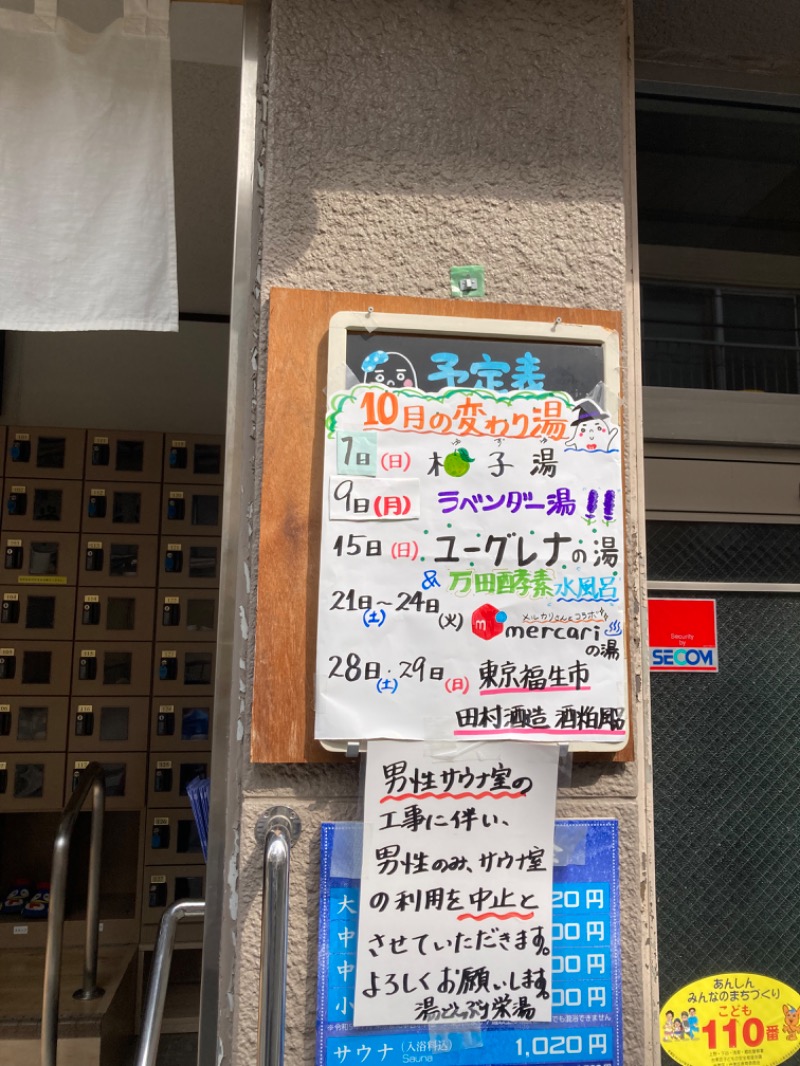 予定表
10月の変わり湯
1日(日) 柚子湯
ゆず ゆ
9日(月) ラベンダー湯
15日(日) ユーグレナの湯
& 万田酵素 水風呂
21日(土)~24日(火) メルカリさんとコラボ
m mercari
の湯
28日(土)・29日(日) 東京福生市
田村酒造 酒粕風呂
男性サウナ室の
工事に伴い、
男性のみ、サウナ室
の利用を中止と
させていただきます。
よろしくお願いします。
湯どんぶり栄湯
大 20円
中 00円
中 00円
小 00円
サウナ(入浴料込) 1,020円
Sauna
Security
by
SECOM
あんしん
みんなのまちづくり
こども
110番